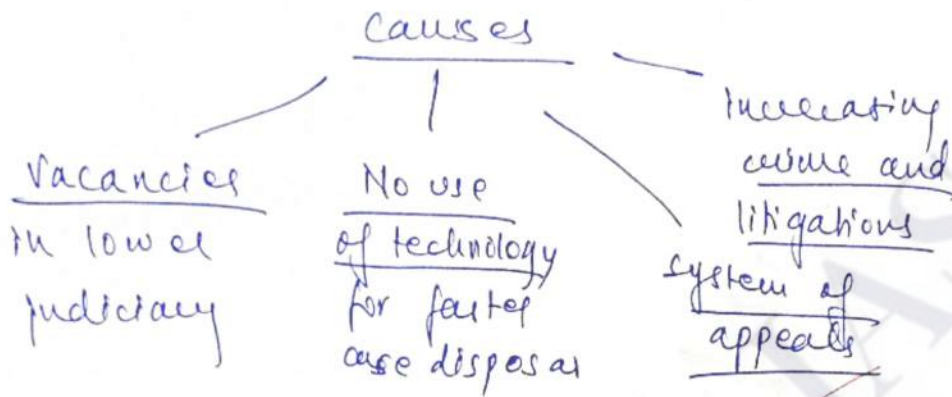 Causes
Vacancies
in lower
judiciary
No use
of technology
for faster
case disposal
system of
appeals
increasing
crime and
litigations